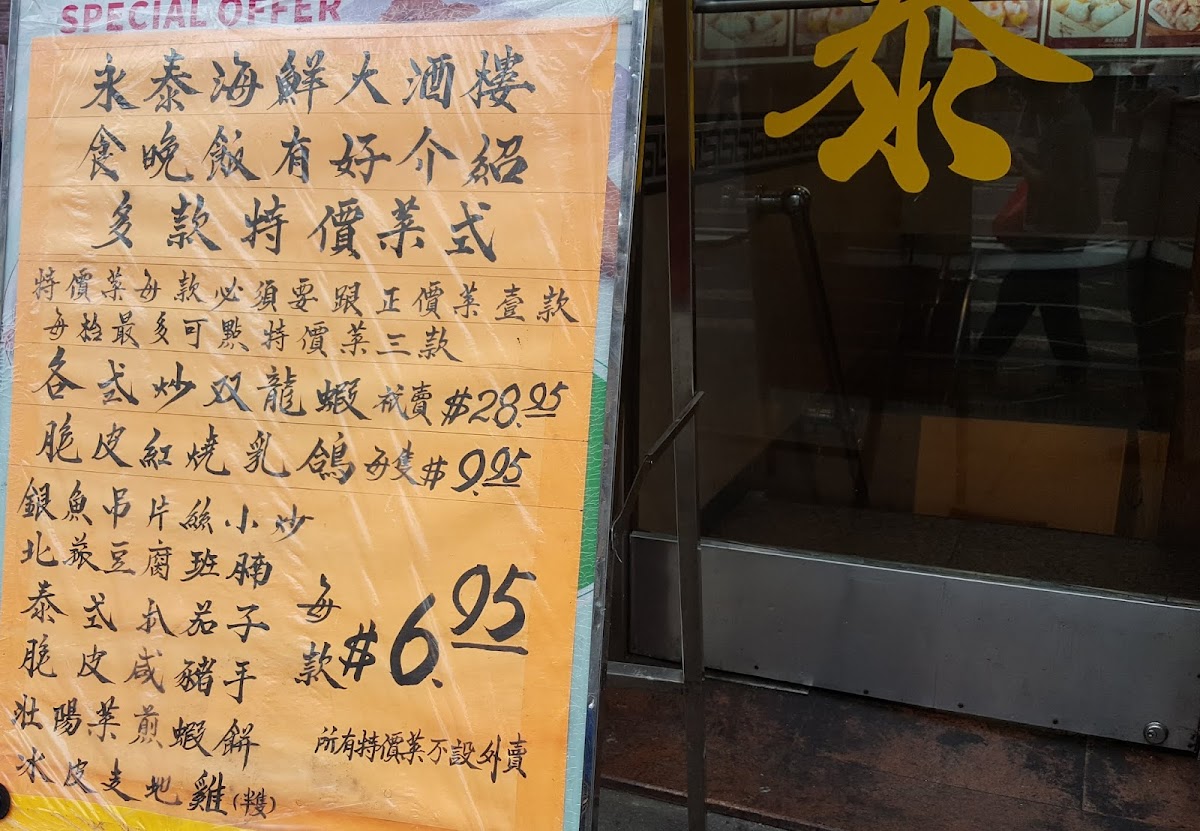 SPECIAL OFFER
永泰海鮮大酒樓
食晚飯有好介紹
多款特價菜式
特價菜每款必須要跟正價菜壹款
每枱最多可點特價菜三款
各式炒双龍蝦 戒賣 $28.95
脆皮紅燒乳鴿 每隻 $9.95
銀魚吊片絲小炒
北菰豆腐班腩
泰式扒茄子
脆皮咸豬手
壯陽菜煎蝦餅
冰皮走地雞(半隻)
每款 $6.95
所有特價菜不設外賣
泰